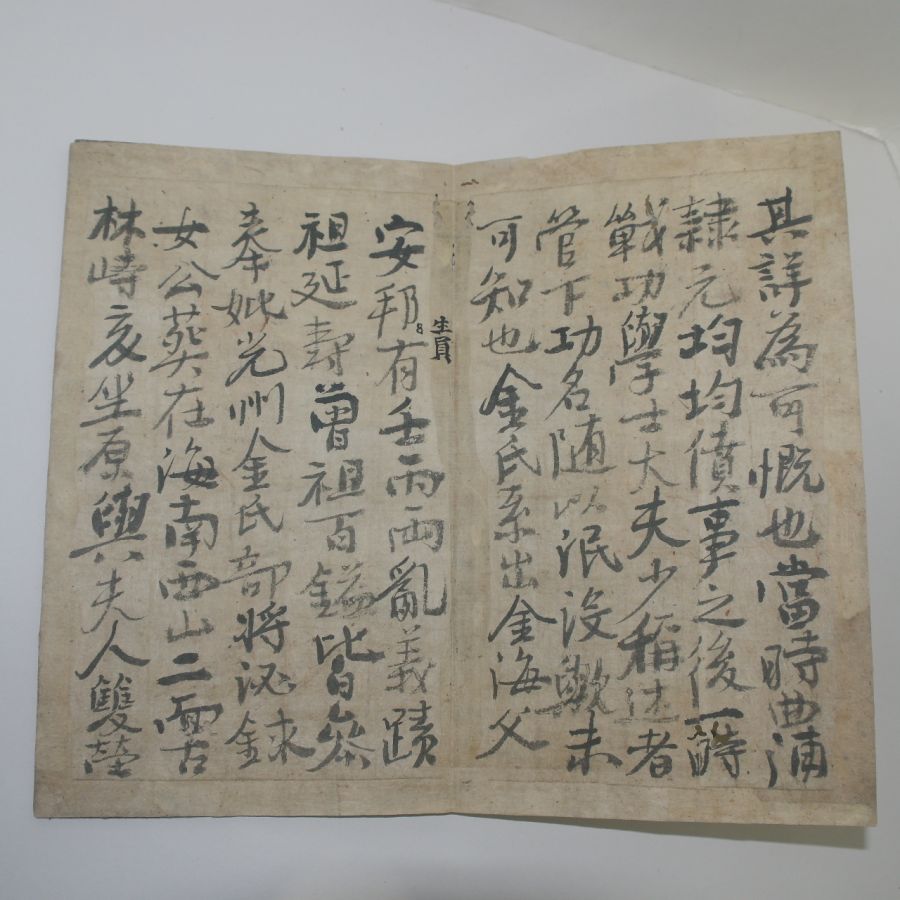 其詳為可慨也當時曲浦
隷元均均僨事之後一時
戰功學士大夫少稱述者
管下功名随以泯没歟未
可知也金氏系出金海父
生員
安邦有壬丙兩亂義蹟
祖延壽曾祖百鎰皆參
奉妣光州金氏部將泌錄
女公葬在海南西山二面古
林峙亥坐原與夫人雙塋